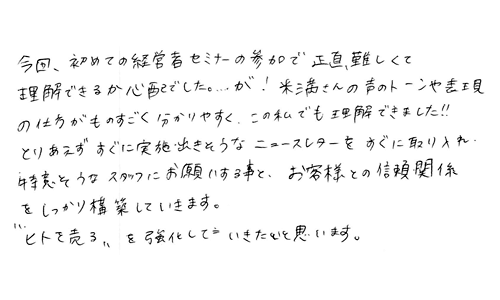 今回、初めての経営者セミナーの参加で正直、難しくて
理解できるか心配でした。…が！米満さんの声のトーンや表現
の仕方がものすごく分かりやすく、この私でも理解できました!!
とりあえずすぐに実施出きそうなニュースレターをすぐに取り入れ、
得意そうなスタッフにお願いする事と、お客様との信頼関係
をしっかり構築していきます。
"ヒトを売る"を強化していきたいと思います。